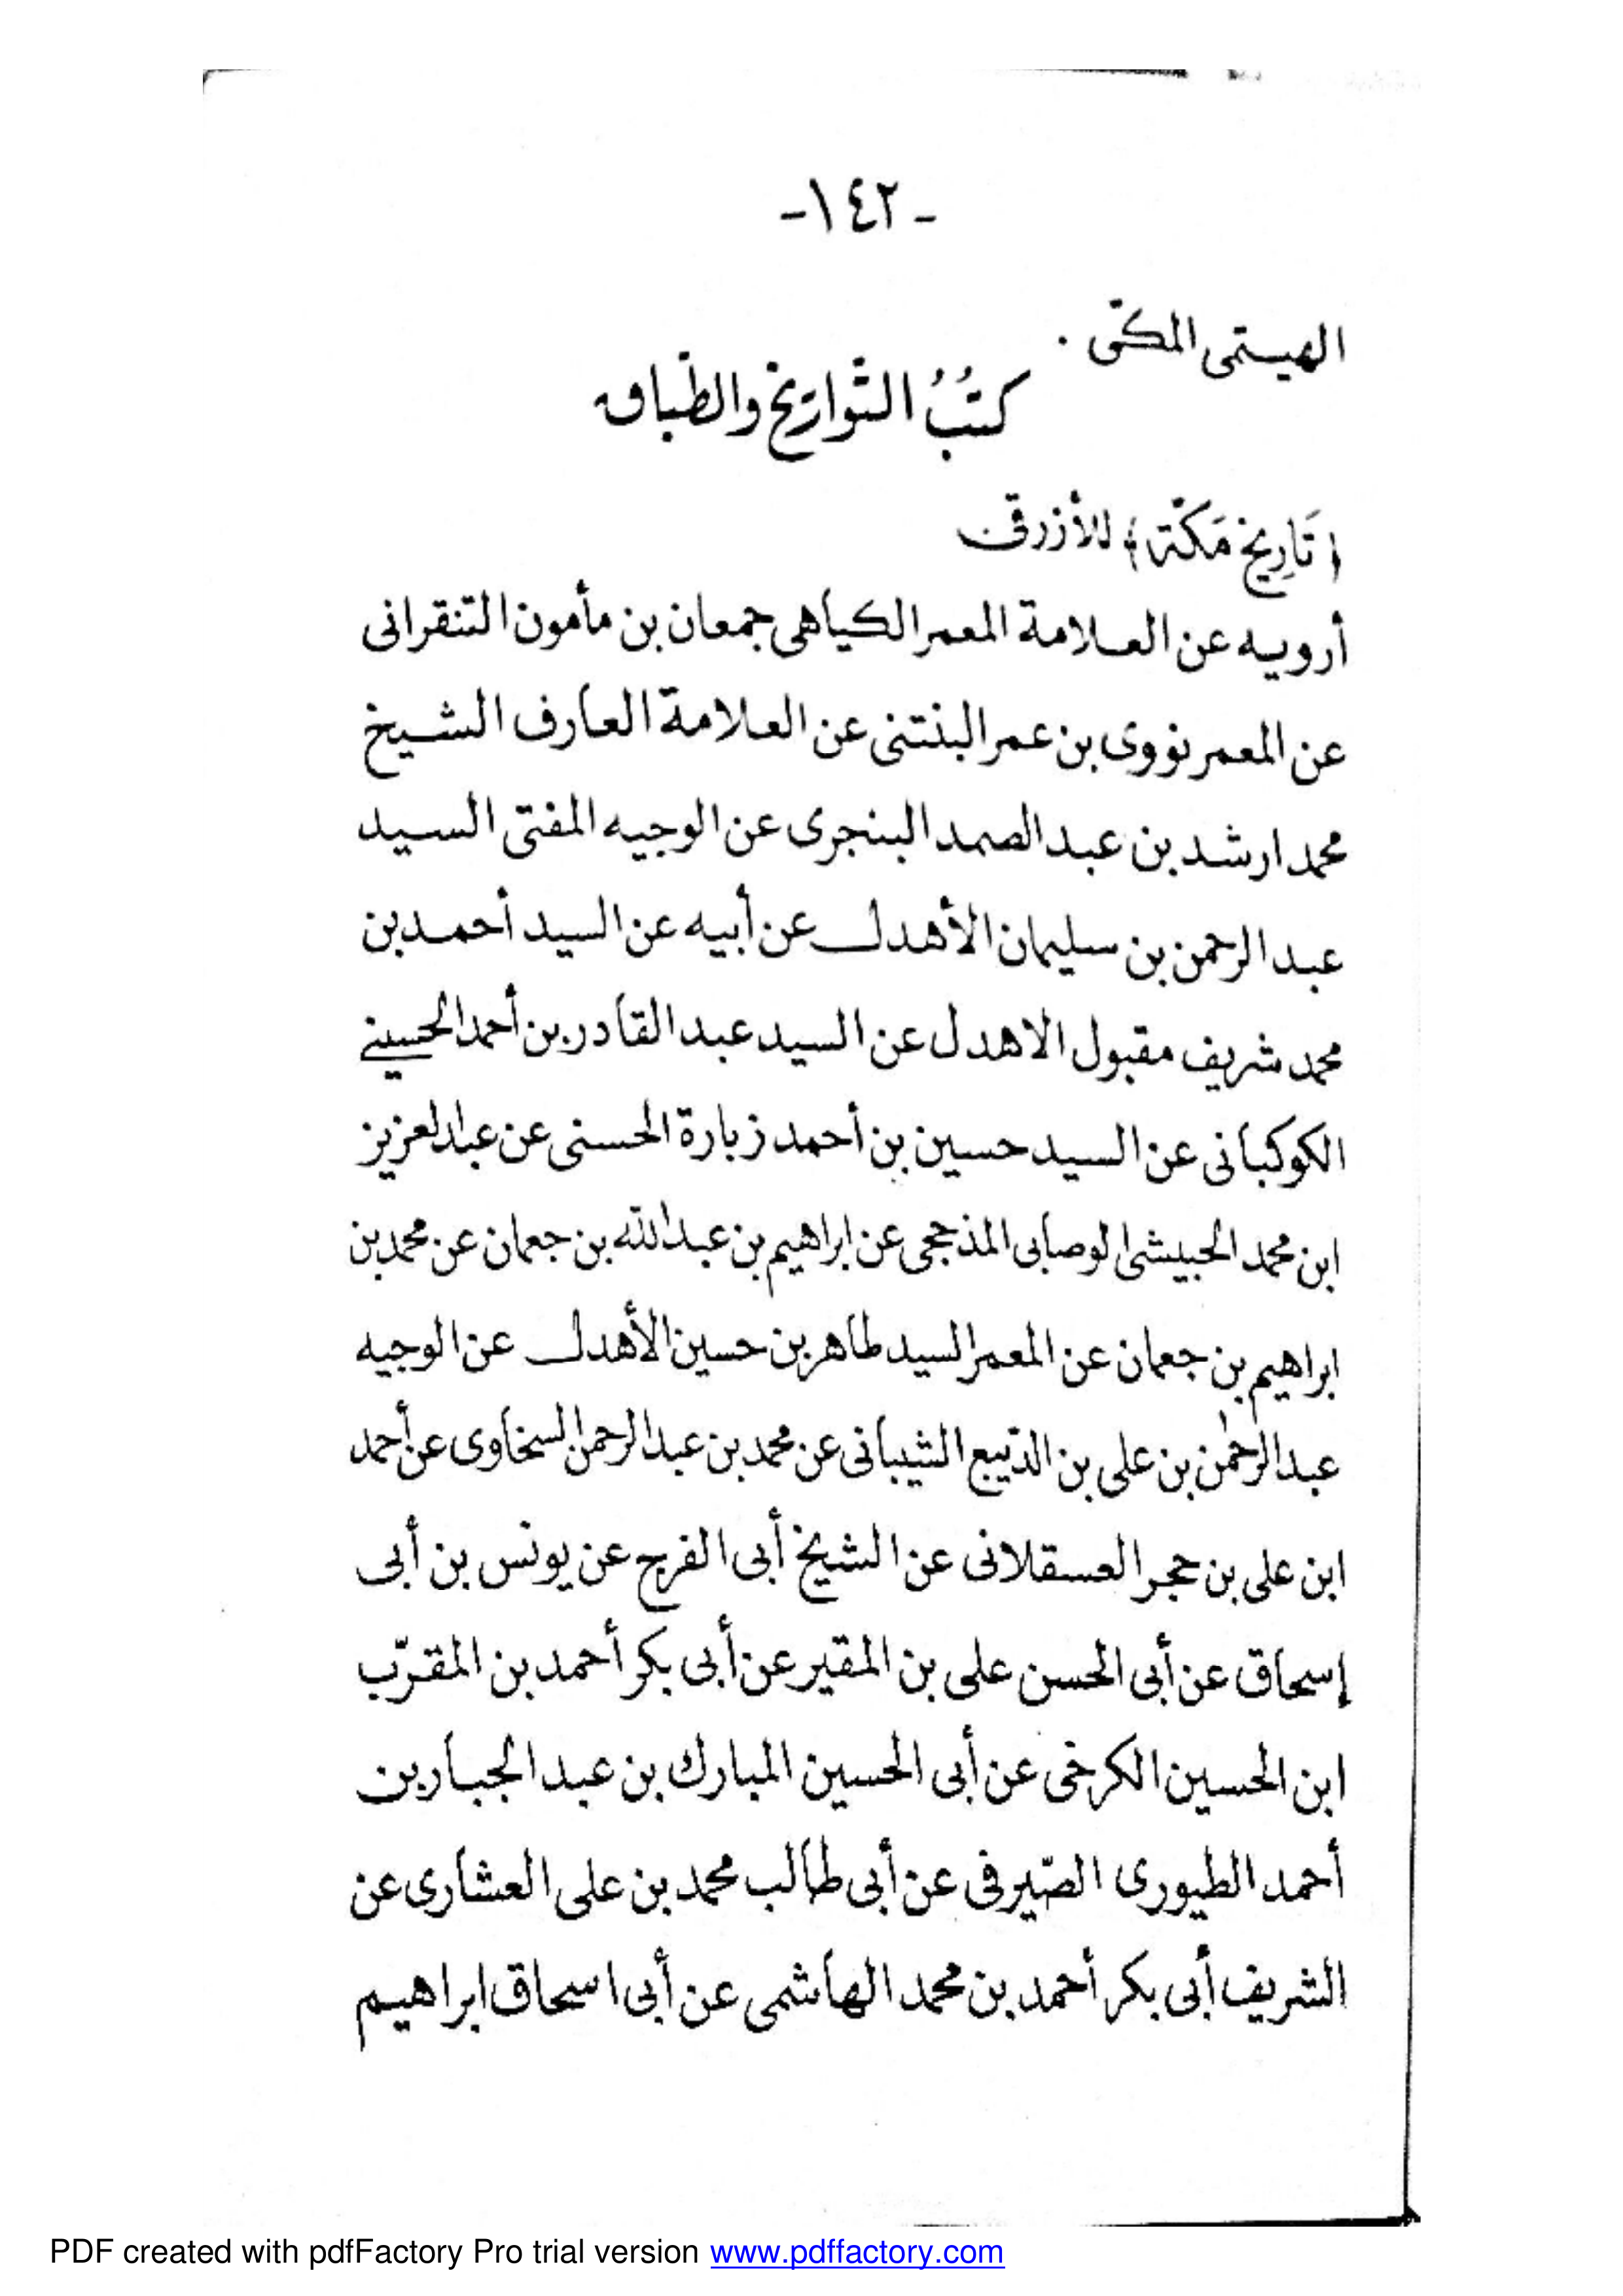 -١٤٢-
الهيـتمى المكىّ .
كتُبُ التّواريخ والطّباق
﴿تَارِيخ مَكّة﴾ للأزرقى
أرويه عن العلامة المعمر الكياهى جمعان بن مأمون التنقرانى
عن المعمر نووى بن عمر البنتنى عن العلامة العارف الشيخ
محمد ارشد بن عبد الصمد البنجرى عن الوجيه المفتى السيد
عبد الرحمن بن سليمان الأهدل عن أبيه عن السيد أحمد بن
محمد شريف مقبول الاهدل عن السيد عبد القادر بن أحمد الحسينى
الكوكبانى عن السيد حسين بن أحمد زبارة الحسنى عن عبد العزيز
ابن محمد الحبيشى الوصابى المذحجى عن ابراهيم بن عبد الله بن جعمان عن محمد بن
ابراهيم بن جعمان عن المعمر السيد طاهر بن حسين الأهدل عن الوجيه
عبد الرحمٰن بن على بن الدّيبع الشيبانى عن محمد بن عبد الرحمن السخاوى عن أحمد
ابن على بن حجر العسقلانى عن الشيخ أبى الفرج عن يونس بن أبى
إسحاق عن أبى الحسن على بن المقير عن أبى بكر أحمد بن المقرّب
ابن الحسين الكرخى عن أبى الحسين المبارك بن عبد الجبار بن
أحمد الطيورى الصّيرفى عن أبى طالب محمد بن على العشارى عن
الشريف أبى بكر أحمد بن محمد الهاشمى عن أبى اسحاق ابراهيم
PDF created with pdfFactory Pro trial version www.pdffactory.com